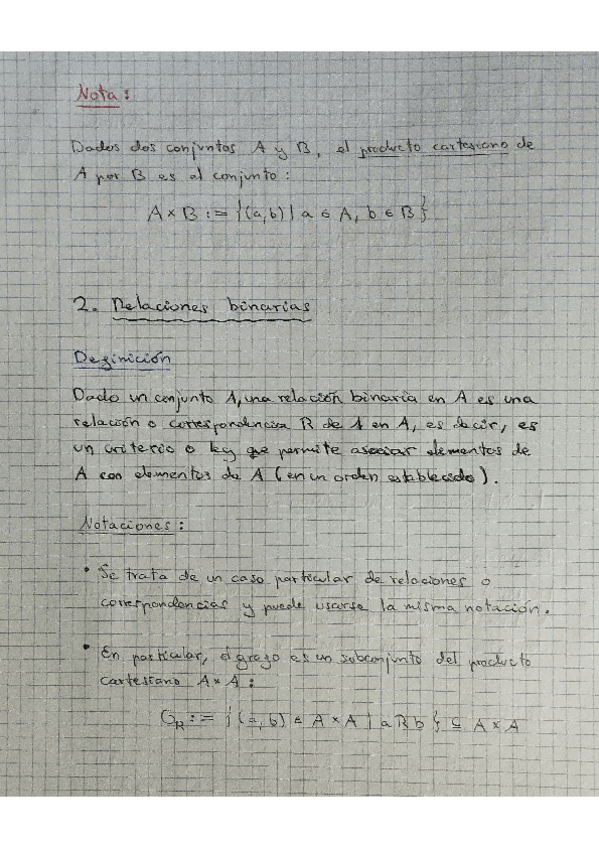 Nota:
Dados dos conjuntos A y B, el producto cartesiano de
A por B es el conjunto:
A × B := {(a,b) | a ∈ A, b ∈ B}
2. Relaciones binarias
Definición
Dado un conjunto A, una relación binaria en A es una
relación o correspondencia R de A en A, es decir, es
un criterio o ley que permite asociar elementos de
A con elementos de A (en un orden establecido).
Notaciones:
• Se trata de un caso particular de relaciones o
correspondencias y puede usarse la misma notación.
• En particular, el grafo es un subconjunto del producto
cartesiano A × A:
G_R := {(a,b) ∈ A × A | a R b} ⊆ A × A